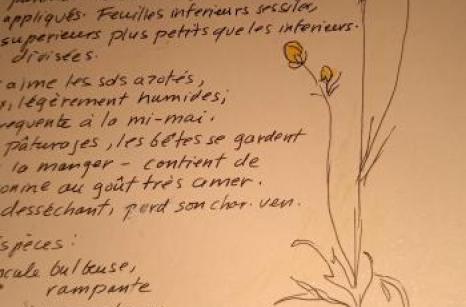 appliqués. Feuilles inférieurs sessiles,
supérieurs plus petits que les inférieurs.
divisées.
aime les sols azotés,
légèrement humides;
à la mi-mai.
pâturages, les bêtes se gardent
la manger - contient de
au goût très amer.
desséchant, perd son char. ven.
spèces:
cule bulbeuse,
rampante